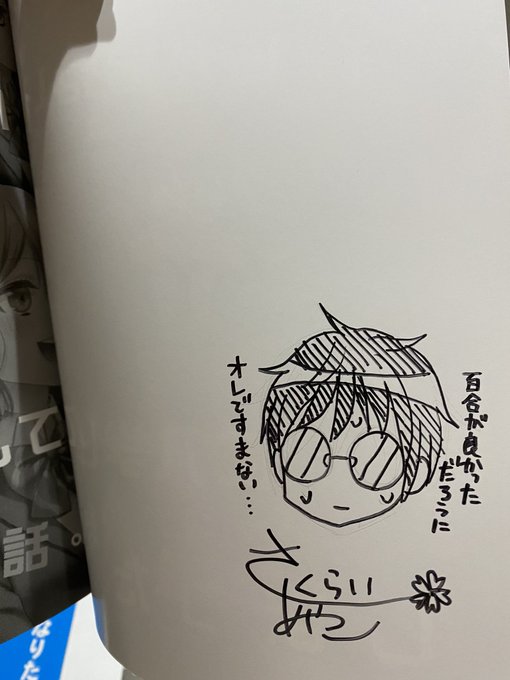 百合が良かった
だろうに
オレですまない…
さくらい
あやこ
て
話。
なりた